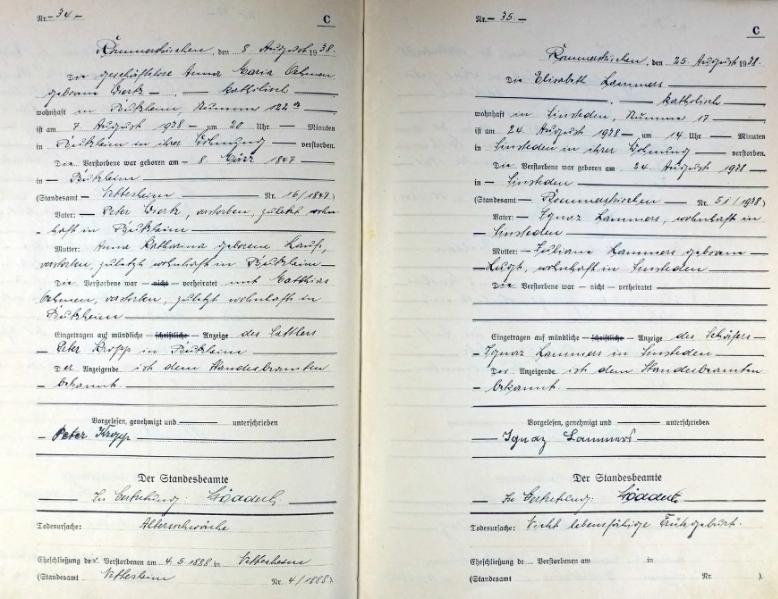 Nr. 34.
C
Rommerskirchen, den 8 August 1938.
Die geschäftslose Anna Maria
geborene — katholisch
wohnhaft in Nummer 122
ist am 7 August 1938 — um 20 Uhr — Minuten
in in ihrer Wohnung — verstorben.
Die Verstorbene war geboren am — 8 März 1847
in —
(Standesamt — Nettesheim — Nr. 16/1847)
Vater: — Peter verstorben, zuletzt wohn-
haft in
Mutter: Anna Katharina geborene
verstorben, zuletzt wohnhaft in
Die Verstorbene war — nicht — verheiratet mit Matthias
verstorben, zuletzt wohnhaft in
Eingetragen auf mündliche — schriftliche — Anzeige des Sattlers
Peter Kropp in
Der Anzeigende ist dem Standesbeamten
bekannt.
Vorgelesen, genehmigt und unterschrieben
Peter Kropp
Der Standesbeamte
In Vertretung:
Todesursache: Altersschwäche
Eheschließung der Verstorbenen am 4.5.1888 in Nettesheim
(Standesamt Nettesheim Nr. 4/1888)
Nr. 35.
C
Rommerskirchen, den 25 August 1938.
Die Elisabeth Lammers
— katholisch
wohnhaft in Sinsteden, Nummer 17
ist am 24. August 1938 — um 14 Uhr — Minuten
in Sinsteden in ihrer Wohnung — verstorben.
Die Verstorbene war geboren am 24. August 1938
in — Sinsteden
(Standesamt — Rommerskirchen — Nr. 51/1938)
Vater: — Ignaz Lammers, wohnhaft in
Sinsteden
Mutter: — Juliana Lammers geborene
wohnhaft in Sinsteden
Die Verstorbene war — nicht — verheiratet
Eingetragen auf mündliche — schriftliche — Anzeige des Schäfers
Ignaz Lammers in Sinsteden
Der Anzeigende ist dem Standesbeamten
bekannt.
Vorgelesen, genehmigt und unterschrieben
Ignaz Lammers
Der Standesbeamte
In Vertretung:
Todesursache: Nicht lebensfähige Frühgeburt.
Eheschließung de Verstorbenen am in
(Standesamt Nr. ).